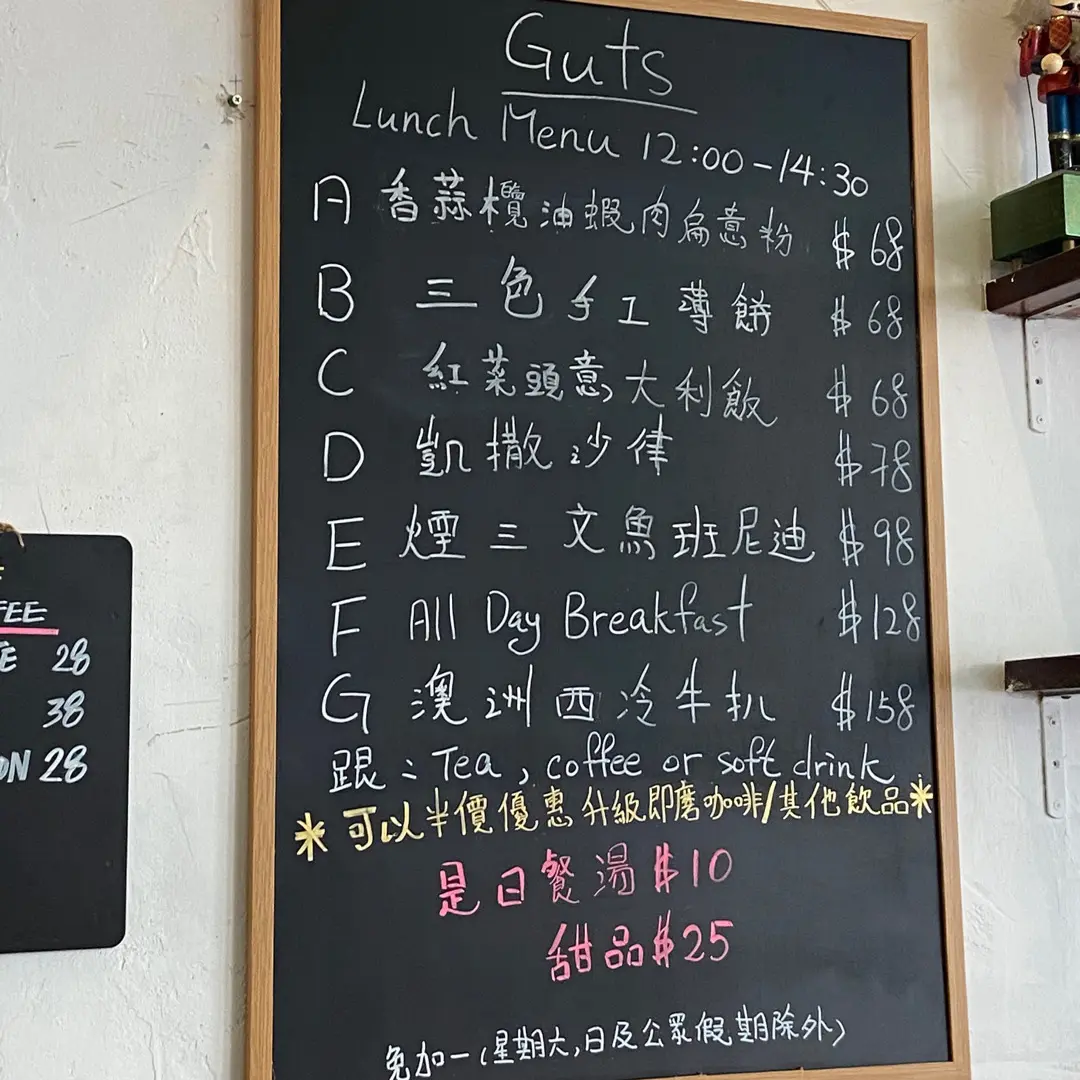 Guts
Lunch Menu 12:00-14:30
A 香蒜欖油蝦肉扁意粉 $68
B 三色手工薄餅 $68
C 紅菜頭意大利飯 $68
D 凱撒沙律 $78
E 煙三文魚班尼迪 $98
F All Day Breakfast $128
G 澳洲西冷牛扒 $158
跟：Tea, coffee or soft drink
*可以半價優惠升級即磨咖啡/其他飲品*
是日餐湯$10
甜品$25
免加一(星期六,日及公眾假期除外)
28
38
28